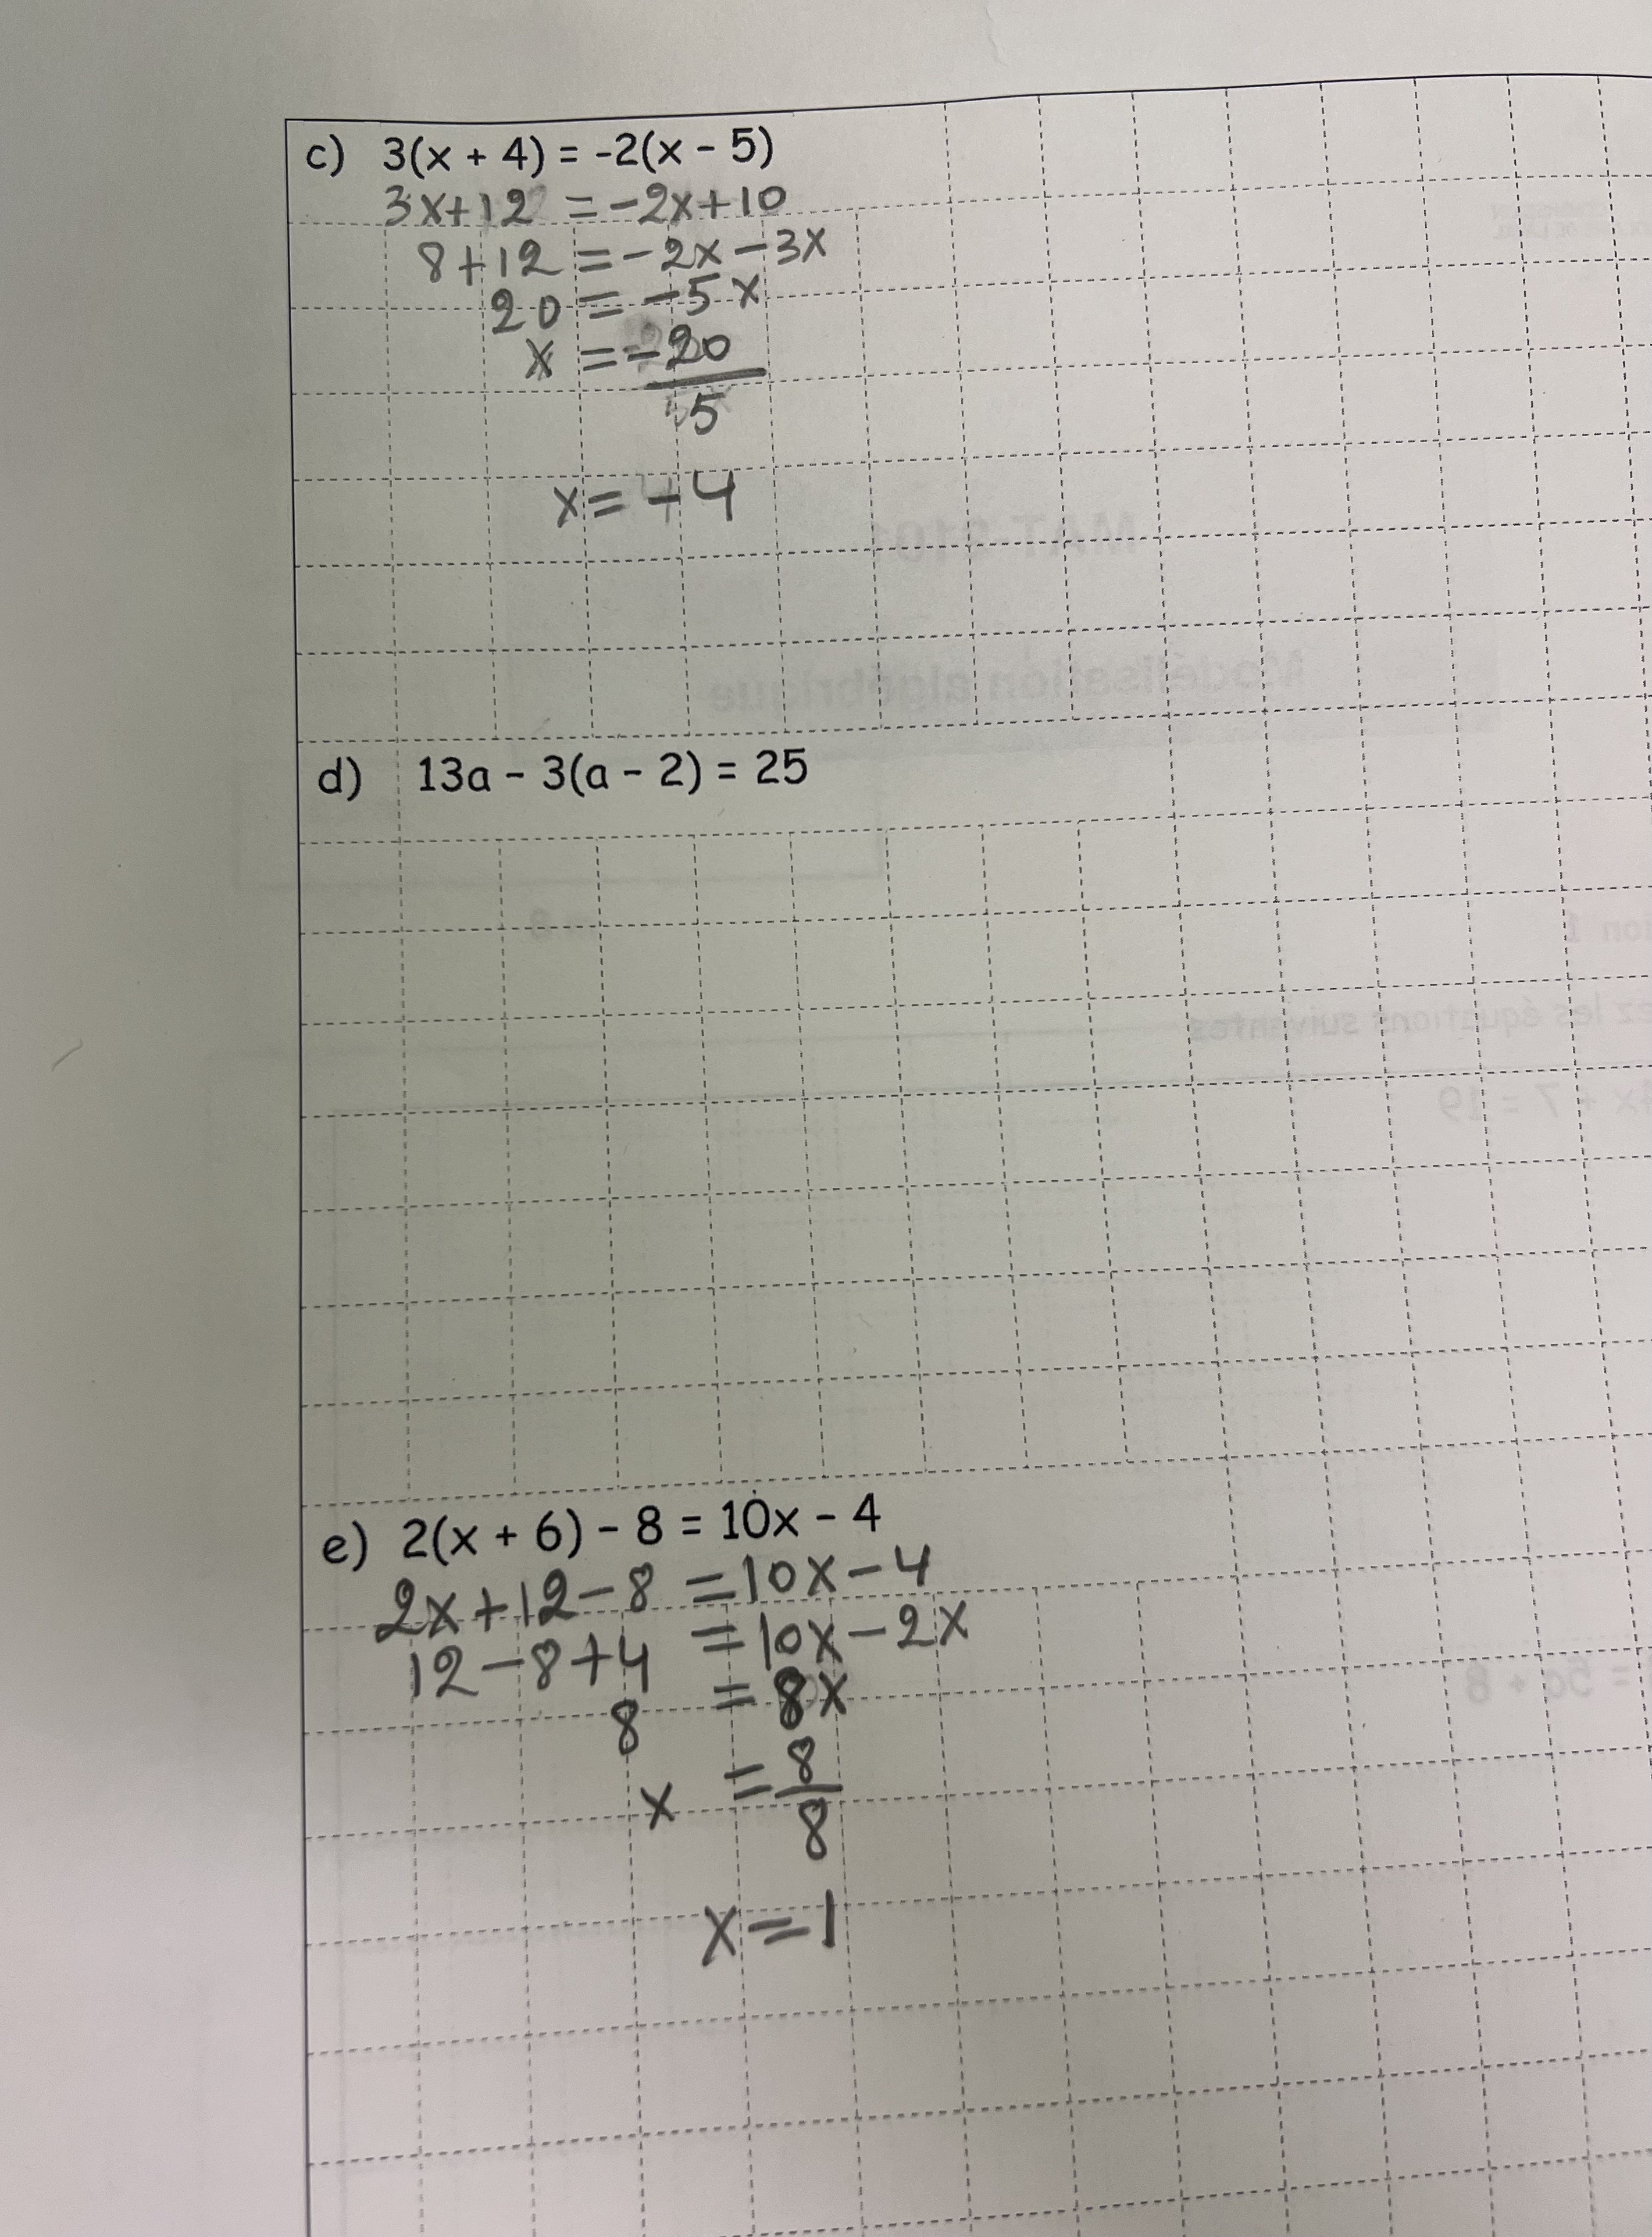 c) 3(x + 4) = -2(x - 5)
3x+12 = -2x+10
8+12 = -2x-3x
20 = -5x
x = -20
5
x = -4
d) 13a - 3(a - 2) = 25
e) 2(x + 6) - 8 = 10x - 4
2x+12-8 = 10x-4
12-8+4 = 10x-2x
8 = 8x
x = 8
8
x=1